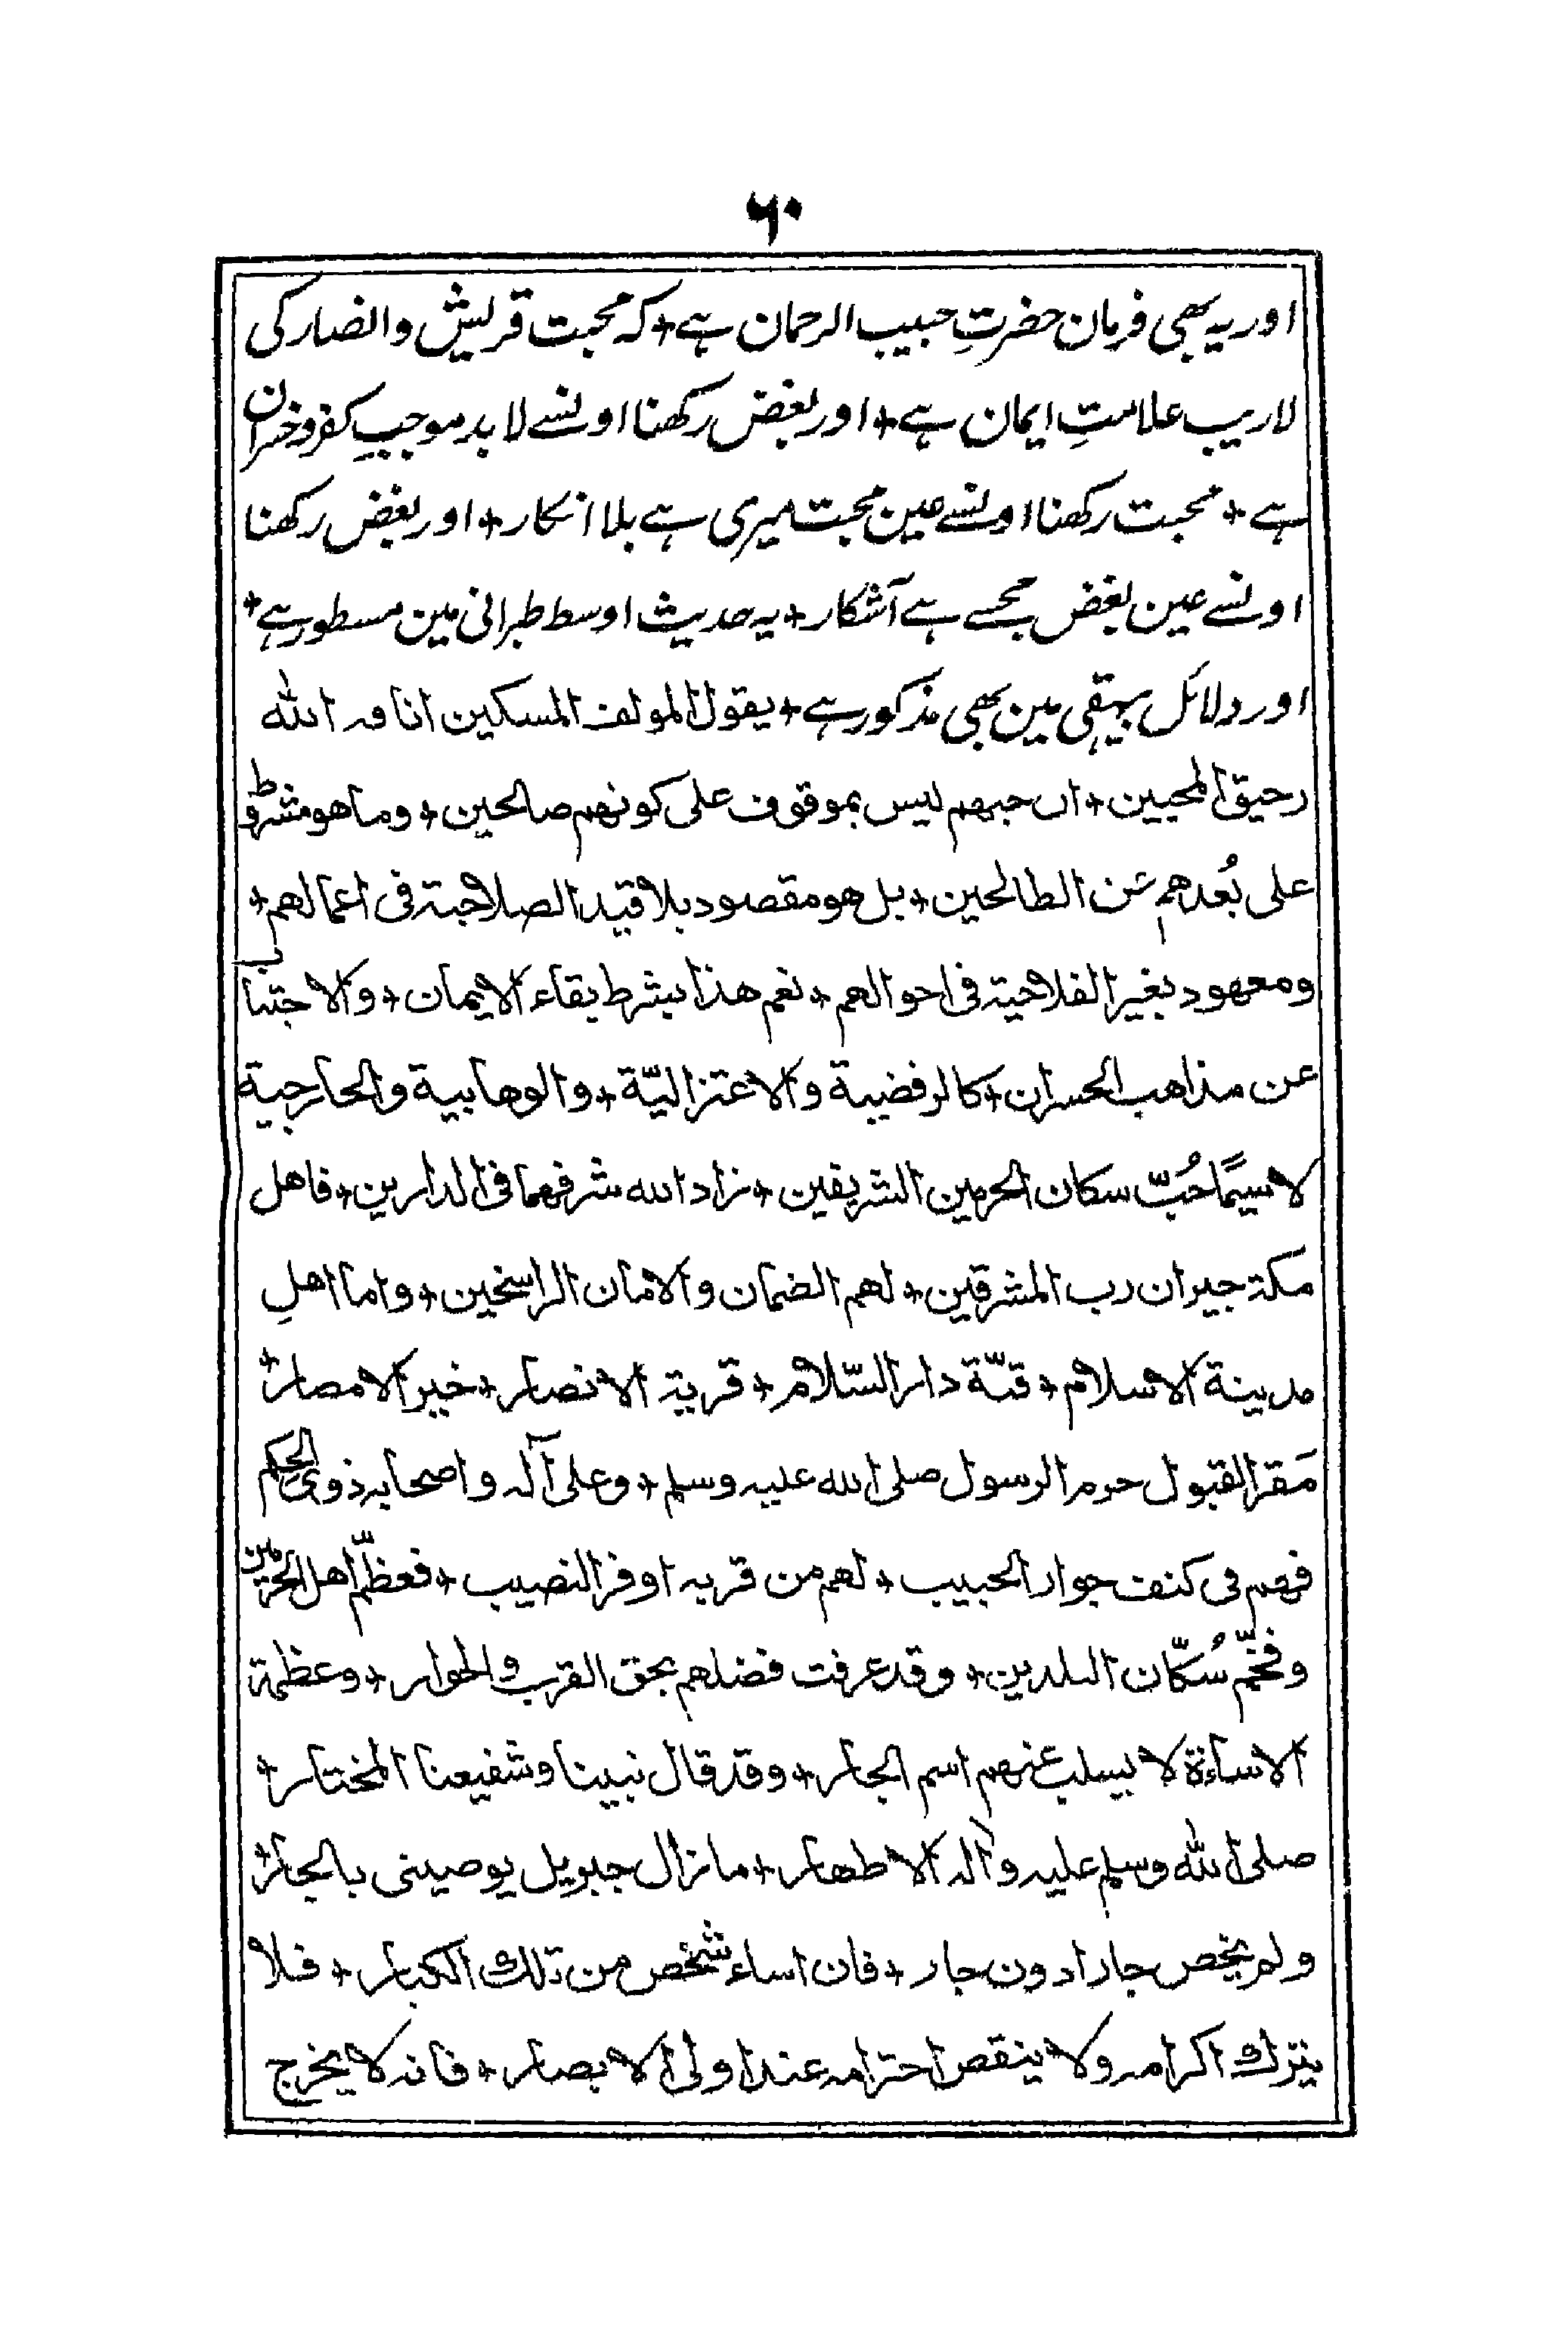 ۶۰
اور یہ بھی فرمان حضرتِ حبیب الرحمان ہے + کہ محبت قریش و انصار کی
لاریب علامتِ ایمان ہے + اور بغض رکھنا اونسے لابد موجبِ کفر و خسران
ہے + محبت رکھنا اونسے عین محبت میری ہے بلا انکار + اور بغض رکھنا
اونسے عین بغض مجھسے ہے آشکار + یہ حدیث اوسط طبرانی مین مسطور ہے +
اور دلائل بیہقی مین بھی مذکور ہے + یقول المولف المسکین اناقہ اللہ
رحیق المحبین + ان حبھم لیس بموقوف علی کونھم صالحین + وما ھو مشروط
علی بُعدھم عن الطالحین + بل ھو مقصود بلا قید الصلاحیۃ فی اعمالھم +
ومعھود بغیر الفلاحیۃ فی احوالھم + نعم ھذا بشرط بقاء الایمان + والاجتناب
عن مذاھب الخسران + کالرفضیۃ والاعتزالیّۃ + والوھابیۃ والخارجیۃ
لا سیمًا حُبّ سکان الحرمین الشریفین + زاد اللہ شرفھما فی الدارین + فاھل
مکۃ جیران رب المشرقین + لھم الضمان والامان الراسخین + واما اھلِ
مدینۃ الاسلام + قبّۃ دار السّلام + قریۃ الانصار + خیر الامصار +
مَقر القبول حرم الرسول صلی اللہ علیہ وسلم + وعلی آلہ واصحابہ ذوی الحکم
فھم فی کنف جوار الحبیب + لھم من قربہ اوفر النصیب + فعظّم اھل الحرمین
وفخّم سُکّان البلدین + وقد عرفت فضلھم بحق القرب والجوار + وعظمۃ
الاساءۃ لا یسلب عنھم اسم الجار + وقد قال نبینا وشفیعنا المختار +
صلی اللہ وسلم علیہ وآلہ الاطھار + مازال جبریل یوصینی بالجار +
ولم یخص جارا دون جار + فان اساء شخص من تلك الکبار + فلا
یترك اکرامہ ولا ینقص احترامہ عند اولی الابصار + فانہ لا یخرج